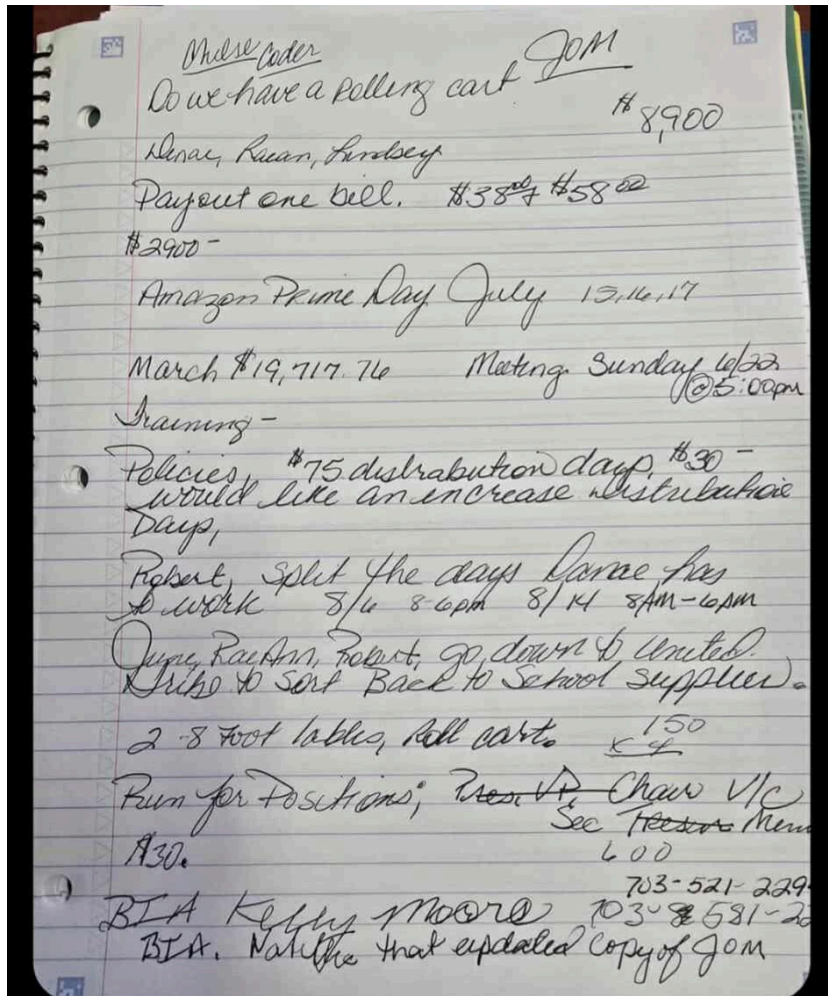 Coder JOM
Do we have a rolling cart
$8,900
Danae, Raean, Lindsey
Payout one bill. $38 $58.00
$2900-
Amazon Prime Day July 15,16,17
March $19,717.76 Meeting Sunday 6/22
@5:00pm
Training-
Policies, $75 distrabution days, $30-
would like an increase distribution
Days,
Robert, split the days Danae has
to work 8/6 8-6pm 8/14 8AM-6pm
June, RaeAnn, Robert, go down to United
Tribe to Sort Back to School supplies.
2-8 Foot tables, Roll cart. 150
x 4
Run for Positions; Pres. VP, Chair V/C
Sec Mem
$30. 600
703-521-229
BIA Kelly Moore 703-581-22
BIA. that updated copy of JOM